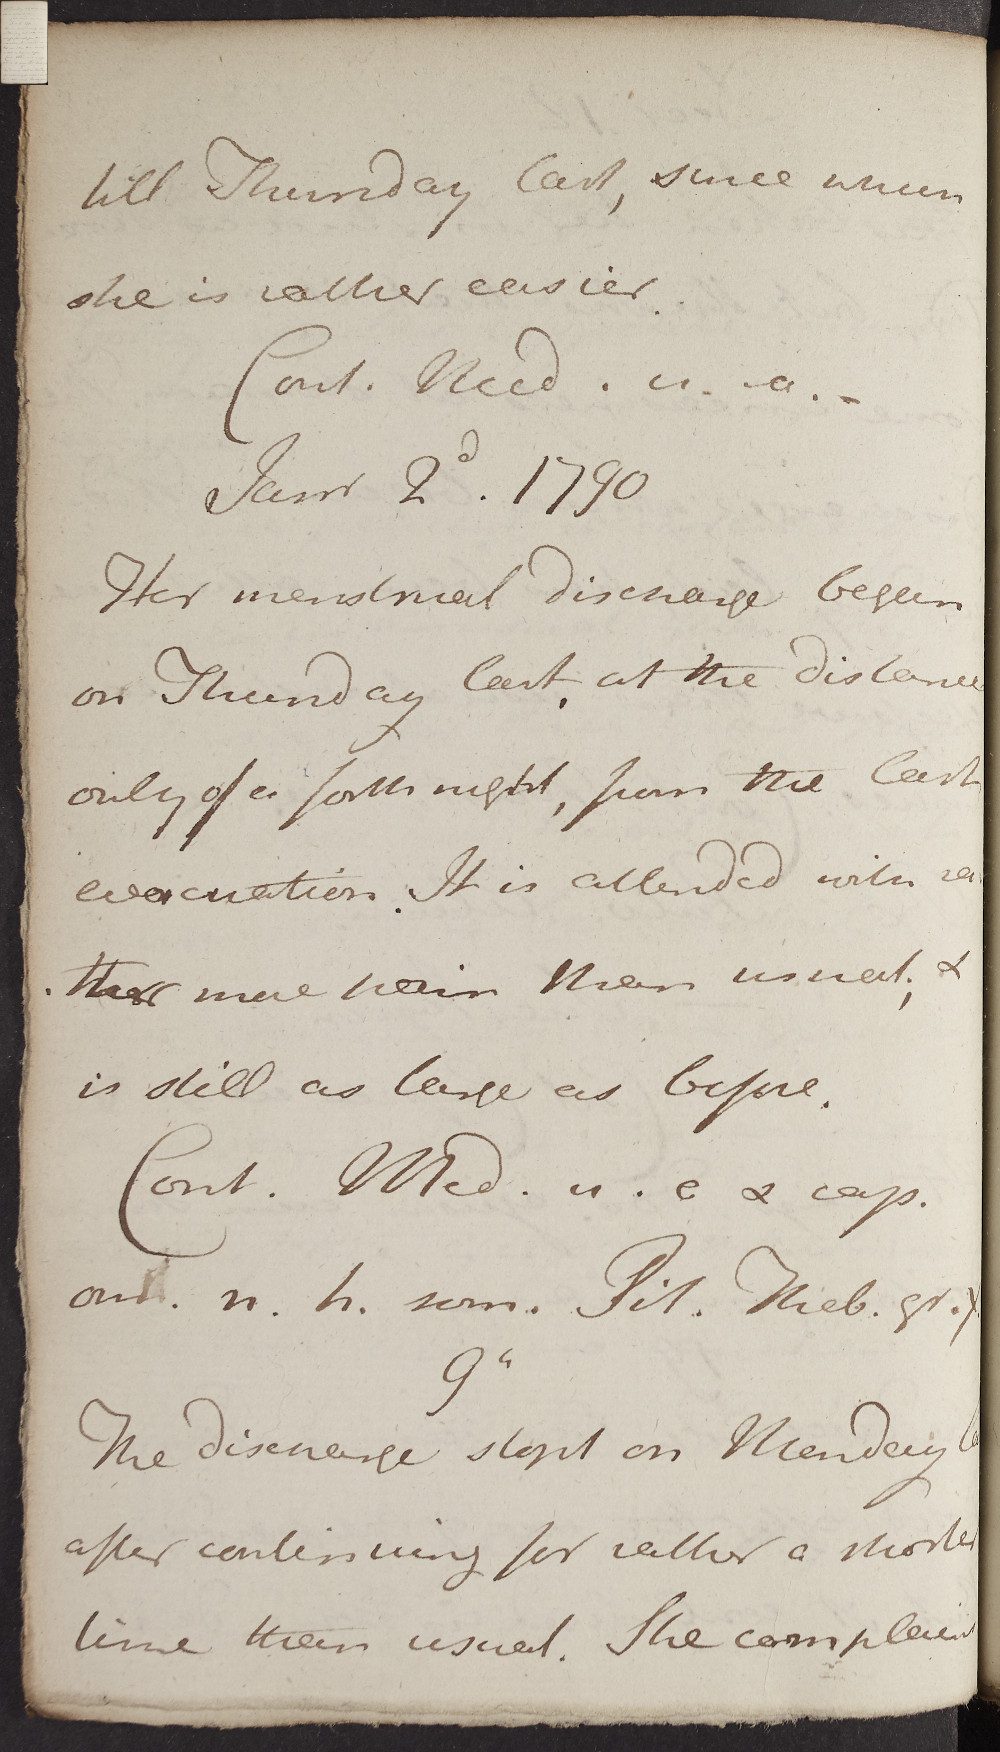 till Thursday last, since when
she is rather easier.
Cont. Med. u. a.-
Janr 2d. 1790
Her menstrual discharge began
on Thursday last, at the distance
only of a fortnight, from the last
evacuation. It is attended with ra
ther more pain than usual; &
is still as large as before.
Cont. Med. u. a & cap.
omn. n. h. som. Pil. Theb. gr. x
9th
The discharge stopt on Monday
after continuing for rather a shorter
time than usual. She complains